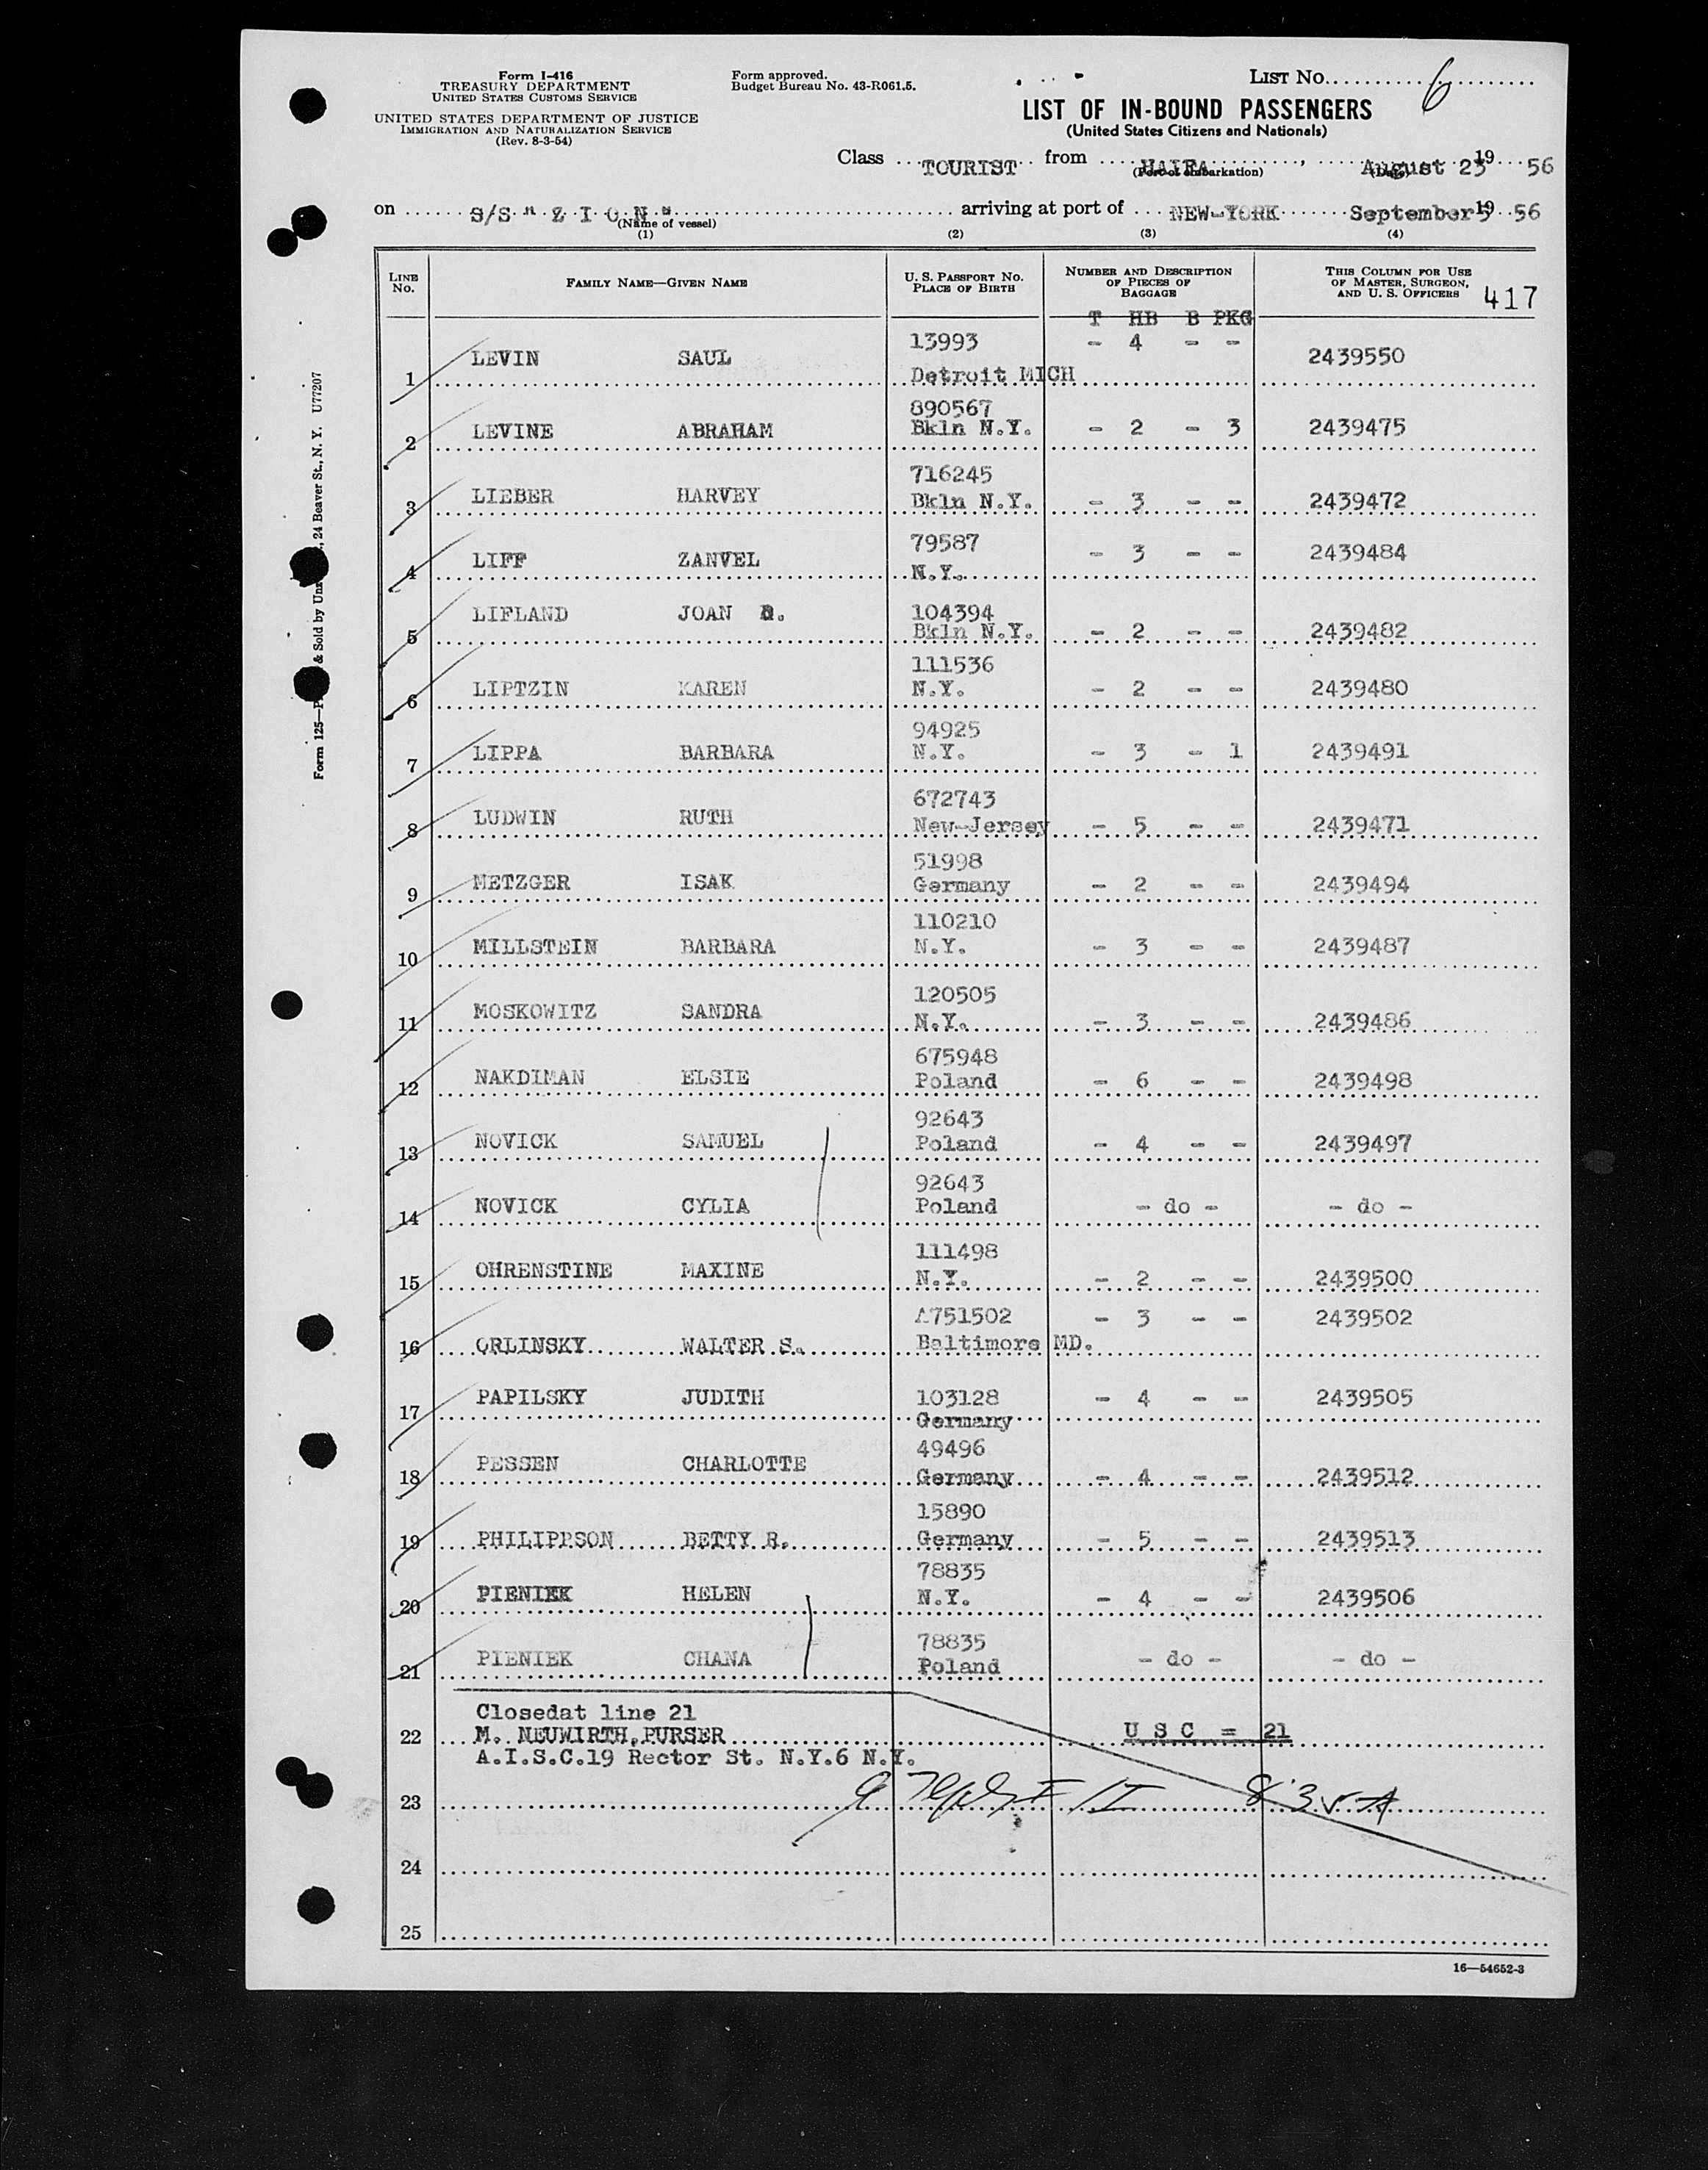 Form I-416
TREASURY DEPARTMENT
UNITED STATES CUSTOMS SERVICE
UNITED STATES DEPARTMENT OF JUSTICE
IMMIGRATION AND NATURALIZATION SERVICE
(Rev. 8-3-54)
Form approved.
Budget Bureau No. 43-R061.5.
LIST No. 6
LIST OF IN-BOUND PASSENGERS
(United States Citizens and Nationals)
Class TOURIST from HAIFA, August 23 19 56
(Port of embarkation) (Date)
on S/S " Z I O N " arriving at port of NEW-YORK September 19 56
(Name of vessel)
(1) (2) (3) (4)
LINE No. FAMILY NAME—GIVEN NAME U. S. PASSPORT No. PLACE OF BIRTH NUMBER AND DESCRIPTION OF PIECES OF BAGGAGE THIS COLUMN FOR USE OF MASTER, SURGEON, AND U. S. OFFICERS 417
T HB B PKG
1 LEVIN SAUL 13993 Detroit MICH - 4 - - 2439550
2 LEVINE ABRAHAM 890567 Bkln N.Y. - 2 - 3 2439475
3 LIEBER HARVEY 716245 Bkln N.Y. - 3 - - 2439472
4 LIFF ZANVEL 79587 N.Y. - 3 - - 2439484
5 LIFLAND JOAN 104394 Bkln N.Y. - 2 - - 2439482
6 LIPTZIN KAREN 111536 N.Y. - 2 - - 2439480
7 LIPPA BARBARA 94925 N.Y. - 3 - 1 2439491
8 LUDWIN RUTH 672743 New-Jersey - 5 - - 2439471
9 METZGER ISAK 51998 Germany - 2 - - 2439494
10 MILLSTEIN BARBARA 110210 N.Y. - 3 - - 2439487
11 MOSKOWITZ SANDRA 120505 N.Y. - 3 - - 2439486
12 NAKDIMAN ELSIE 675948 Poland - 6 - - 2439498
13 NOVICK SAMUEL 92643 Poland - 4 - - 2439497
14 NOVICK CYLIA 92643 Poland - do - - do -
15 OHRENSTINE MAXINE 111498 N.Y. - 2 - - 2439500
16 ORLINSKY WALTER S. A751502 Baltimore MD. - 3 - - 2439502
17 PAPILSKY JUDITH 103128 Germany - 4 - - 2439505
18 PESSEN CHARLOTTE 49496 Germany - 4 - - 2439512
19 PHILIPPSON BETTY R. 15890 Germany - 5 - - 2439513
20 PIENIEK HELEN 78835 N.Y. - 4 - - 2439506
21 PIENIEK CHANA 78835 Poland - do - - do -
Closedat line 21
22 M. NEUWIRTH,PURSER U S C = 21
A.I.S.C.19 Rector St. N.Y.6 N.Y.
23
24
25
16—54652-3
Form 125— & Sold by 24 Beaver St., N. Y. U77207